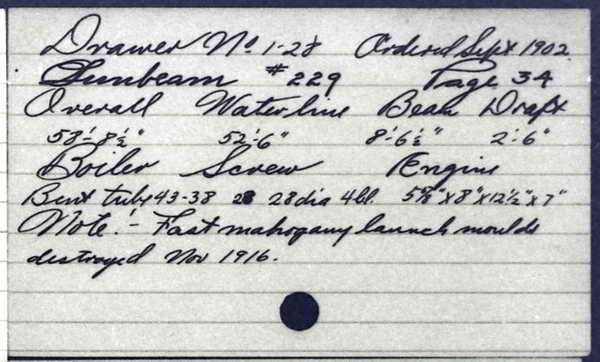 Drawer No. 1-28 Ordered Sept 1902.
Sunbeam #229 Page 34
Overall Waterline Beam Draft
58'-8½" 52'-6" 8'-6½" 2'-6"
Boiler Screw Engine
Bent tube 43-38 28 dia 4 bl. 5⅝" x 8" x 12½" x 7"
Note:- Fast mahogany launch moulds
destroyed Nov 1916.